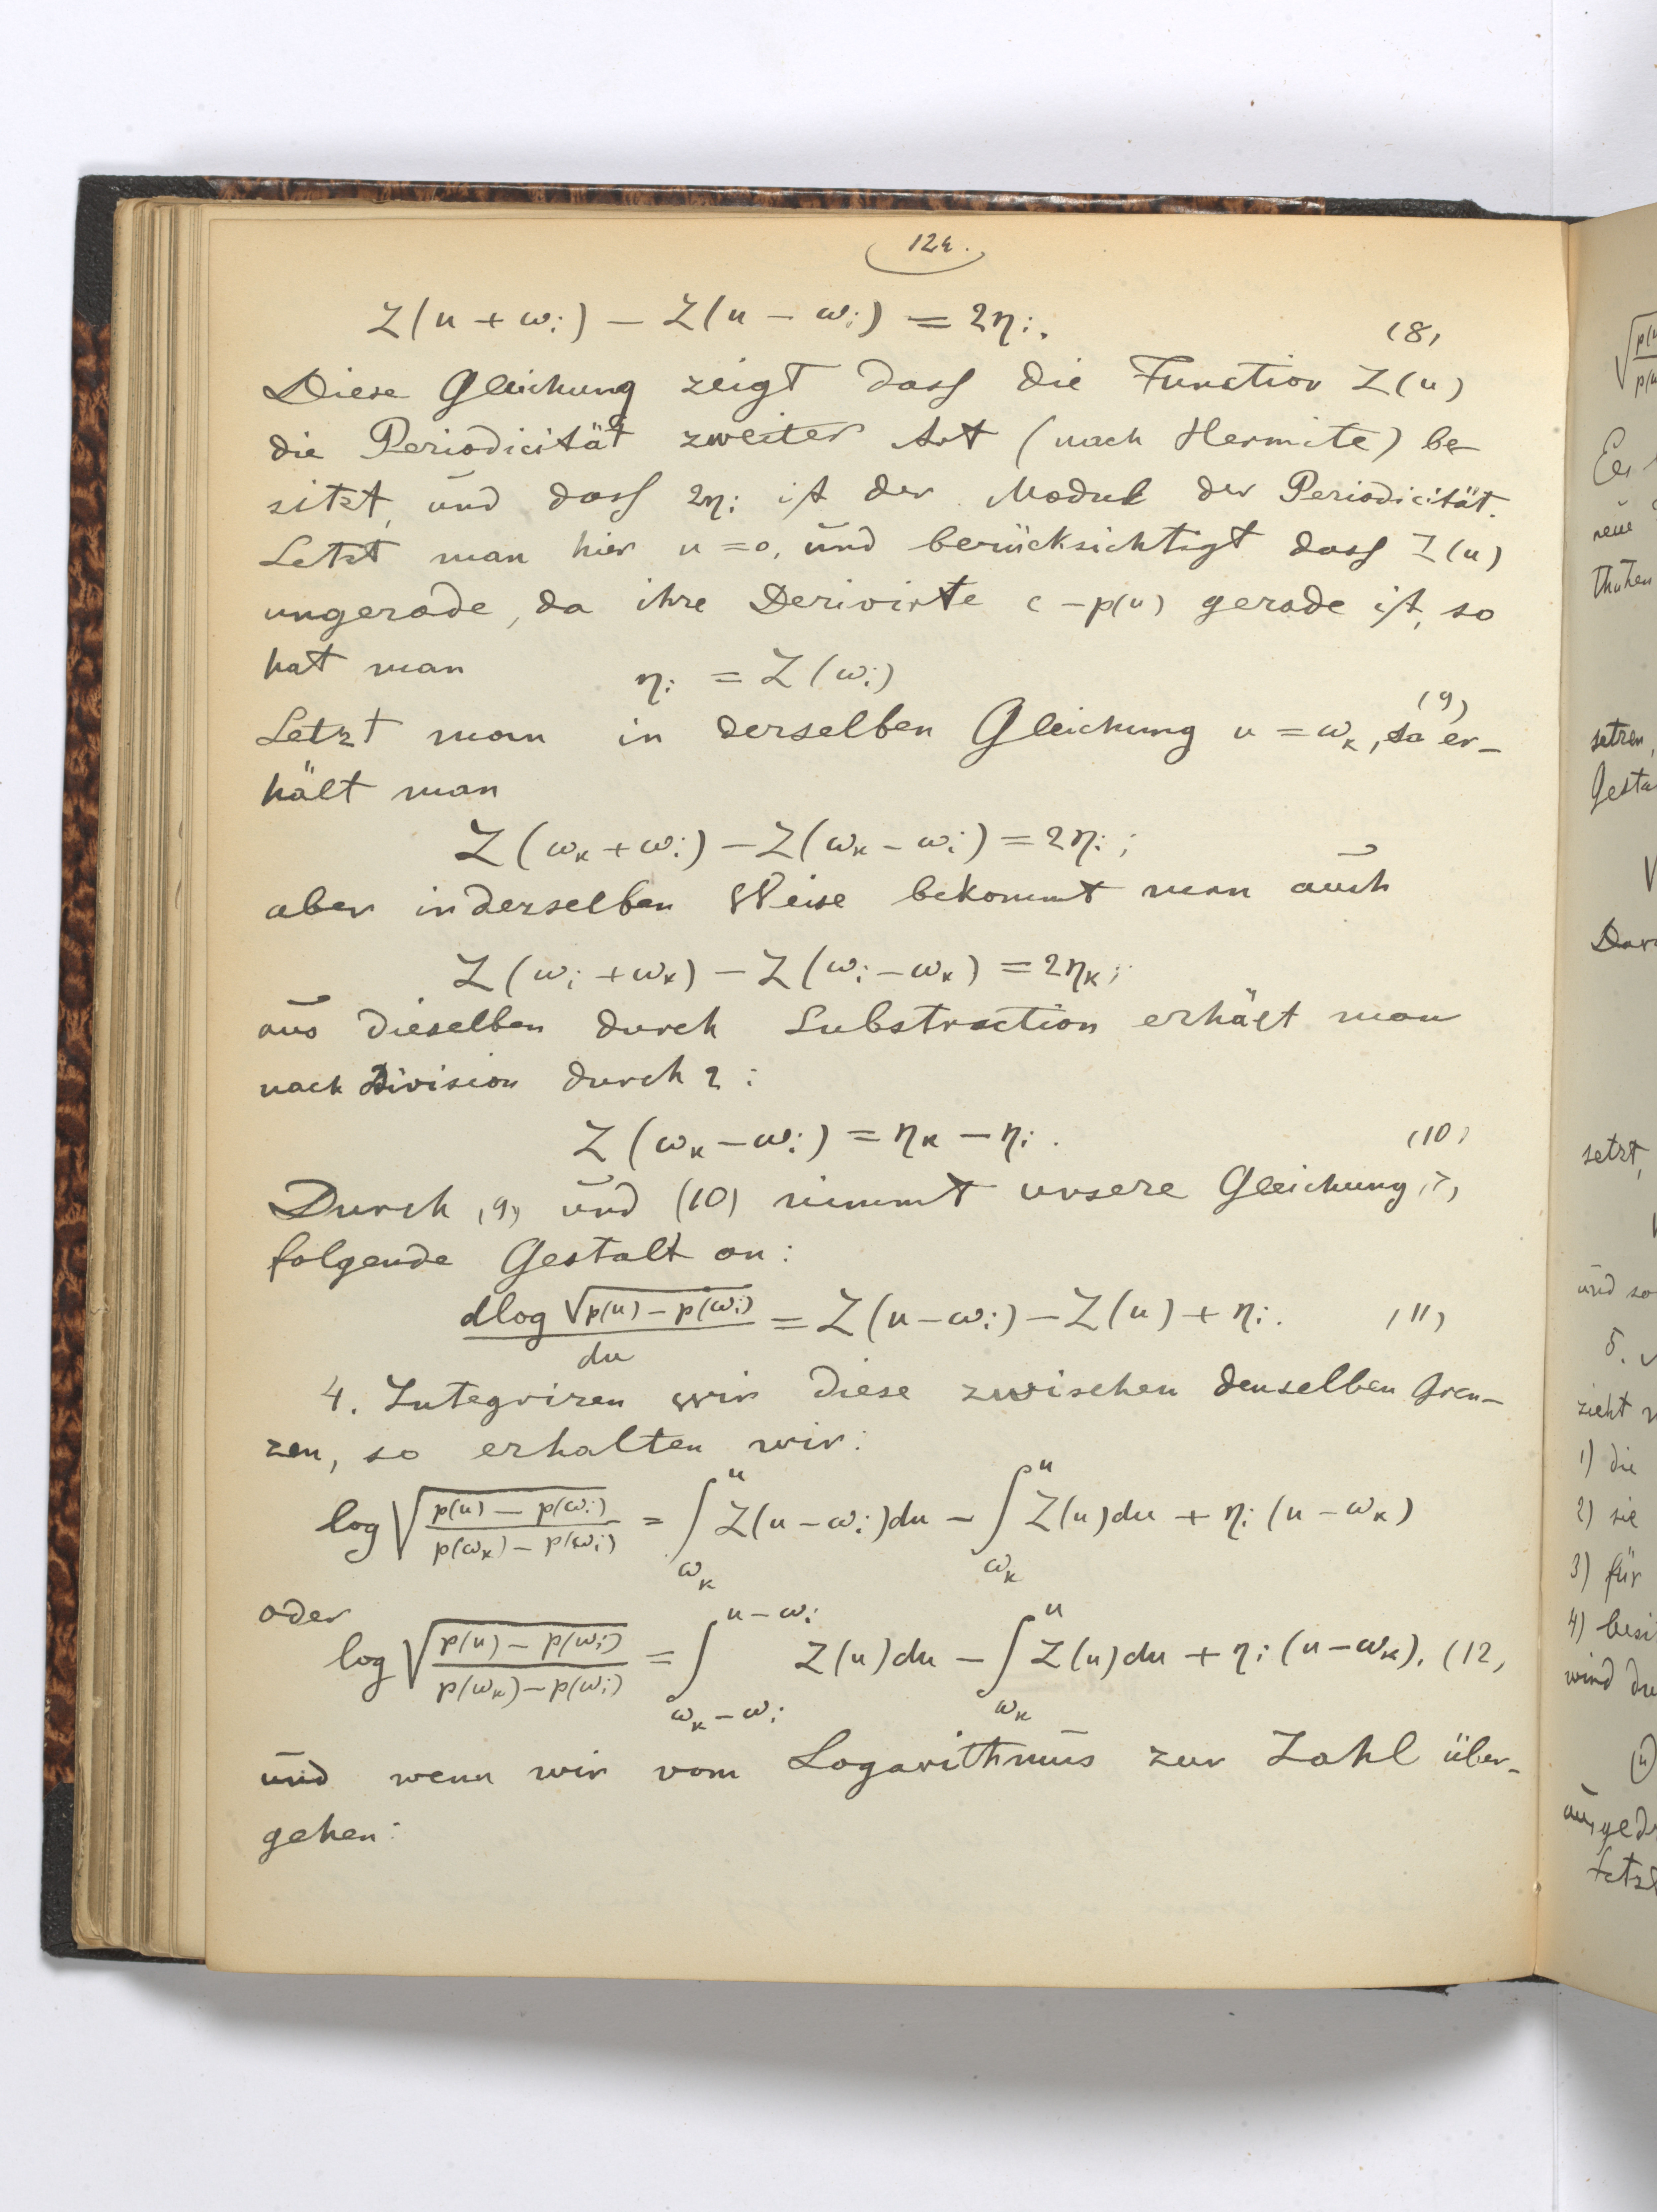 124.
Z(u + ωi) — Z(u — ωi) = 2ηi. (8)
Diese Gleichung zeigt dass die Function Z(u)
die Periodicität zweiter Art (nach Hermite) be-
sitzt, und dass 2ηi ist der Modul der Periodicität.
Setzt man hier u = 0, und berücksichtigt dass Z(u)
ungerade, da ihre Derivirte c — p(u) gerade ist, so
hat man ηi = Z(ωi) (9)
Setzt man in derselben Gleichung u = ωk, so er-
hält man
Z(ωk + ωi) — Z(ωk — ωi) = 2ηi;
aber in derselben Weise bekommt man auch
Z(ωi + ωk) — Z(ωi — ωk) = 2ηk;
aus dieselben durch Substraction erhält man
nach Division durch 2:
Z(ωk — ωi) = ηk — ηi. (10)
Durch (9) und (10) nimmt unsere Gleichung (7)
folgende Gestalt an:
dlog √(p(u) — p(ωi)) / du = Z(u — ωi) — Z(u) + ηi. (11)
4. Integriren wir diese zwischen denselben Gren-
zen, so erhalten wir:
log √((p(u) — p(ωi)) / (p(ωk) — p(ωi))) = ∫_{ωk}^{u} Z(u — ωi)du — ∫_{ωk}^{u} Z(u)du + ηi (u — ωk)
oder
log √((p(u) — p(ωi)) / (p(ωk) — p(ωi))) = ∫_{ωk — ωi}^{u — ωi} Z(u)du — ∫_{ωk}^{u} Z(u)du + ηi (u — ωk). (12)
und wenn wir vom Logarithmus zur Zahl über-
gehen:
neue
setzen,
setzt,
und so
5.
zieht
1) die
2) sie
3) für
4) besi
wird du